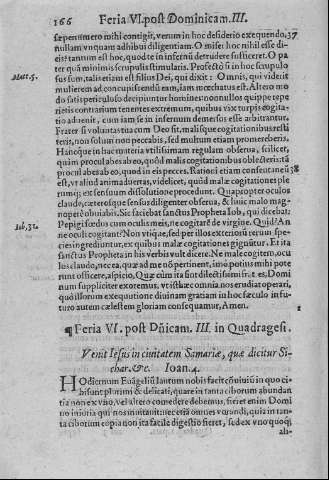 166 Feria VI. post Dominicam. III.
sæpenumero mihi contigit, verum in hoc desiderio exequendo, 37
nullam vnquam adhibui diligentiam. O miser hoc nihil esse di-
cis? tantum est hoc, quod te in infernũ detrudere sufficeret. O pa-
ter quã minimis scrupulis stimularis. Profectò si in hoc scrupulo
sus sum, talis etiam est filius Dei, qui dixit: Omnis, qui viderit
Matt. 5. mulierem ad concupiscendũ eam, iam mœchatus est. Altero mo
do istis periculis decipiuntur homines nonnullos quippe repe
rietis contrarium tenentes extremum, quibus vix turpis cogita-
tio aduenit, cum iam se in infernum demersos esse arbitrantur.
Frater si voluntas tua cum Deo sit, malisque cogitationibus resti
teris, non solum non peccabis, sed multum etiam promereberis.
Hancque in hac materia vtilissimam regulam obserua, scilicet,
quàm procul abes ab eo, quòd malis cogitationibus oblecteris: tã
procul abes ab eo, quod in eis pecces. Rationi etiam consentaneũ 38
est, vt aliud animaduertas, videlicet, quòd malæ cogitationes ple
rumq; ex sensuum dissolutione procedunt. Quapropter oculos
claude, cæterosque sensus diligenter obserua, & huic malo mag-
nopere obuiabis. Sic faciebat sanctus Propheta Iob, qui dicebat:
Iob, 31. Pepigi fœdus cum oculis meis, ne cogitarẽ de virgine. Quid? An
ne oculi cogitant? Non vtiq́; sed per illos exteriorũ rerum spe-
cies ingrediuntur, ex quibus malæ cogitationes giguũtur. Et ita
sanctus Propheta in his verbis vult dicere. Ne male cogitem, ocu
los claudo, nec ea, quæ ad me nõ pertinent, imò potius mihi pote
runt officere, aspicio, Quæ cùm ita sint dilectissimi fr. t. es, Domi
num suppliciter exoremus, vt isthæc omnia nos erudiat operari,
quò illorum exequutione diuinam gratiam in hoc sæculo in futu-
turo autem cælestem gloriam consequamur, Amen.
¶ Feria VI. post Dñicam. III. in Quadrages.
Venit Iesus in ciuitatem Samariæ, quæ dicitur Si-
char. &c. Ioan. 4.
HOdiernum Euãgeliũ lautum nobis facit cõuiuiũ in quo ci-
bi sunt plurimi & delicati, quare in tanta ciborum abundan
tia non ex vno, vel altero comedere debemus, fieret enim Domi
no iniuria qui nos inuitauit: nec etiã omnes vorandi, quia in tan-
ta ciborum copia non ita facile digestio fieret, sed ex vno quoq;
ali-